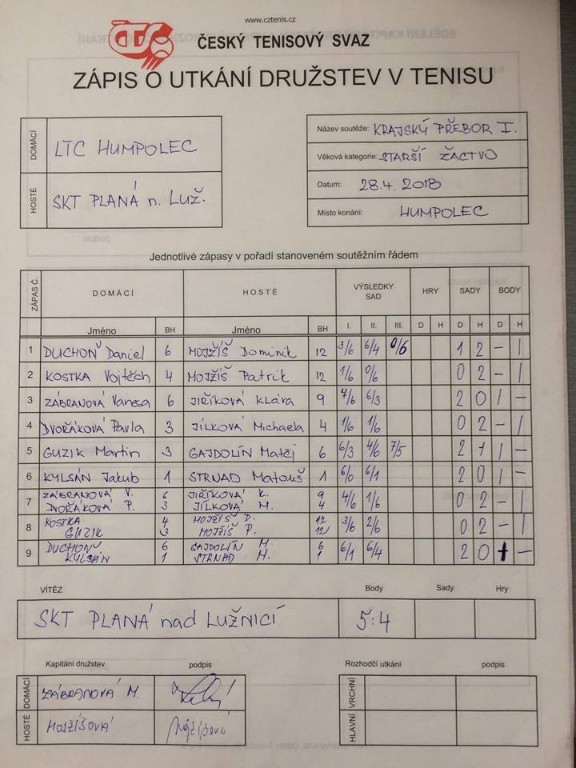 www.cztenis.cz
ČTS ČESKÝ TENISOVÝ SVAZ
ZÁPIS O UTKÁNÍ DRUŽSTEV V TENISU
DOMÁCÍ LTC HUMPOLEC
HOSTÉ SKT PLANÁ n. LUŽ.
Název soutěže: KRAJSKÝ PŘEBOR I.
Věková kategorie: STARŠÍ ŽACTVO
Datum: 28.4. 2018
Místo konání: HUMPOLEC
Jednotlivé zápasy v pořadí stanoveném soutěžním řádem
ZÁPAS Č. DOMÁCÍ HOSTÉ VÝSLEDKY SAD HRY SADY BODY
Jméno BH Jméno BH I. II. III. D H D H D H
1 DUCHOŇ Daniel 6 MOJŽÍŠ Dominik 12 3/6 6/4 0/6 1 2 - 1
2 KOSTKA Vojtěch 4 MOJŽÍŠ Patrik 12 1/6 0/6 0 2 - 1
3 ZÁBRANOVÁ Vanesa 6 JIŘÍKOVÁ Klára 9 7/6 6/3 2 0 1 -
4 DVOŘÁKOVÁ Pavla 3 JÍLKOVÁ Michaela 4 1/6 1/6 0 2 - 1
5 GUZIK Martin 3 GAJDOLÍN Matěj 6 6/3 4/6 7/5 2 1 1 -
6 KYLSÁN Jakub 1 STRNAD Matouš 1 6/0 6/1 2 0 1 -
7 ZÁBRANOVÁ V. 6 JIŘÍKOVÁ K. 9 4/6 1/6 0 2 - 1
DVOŘÁKOVÁ P. 3 JÍLKOVÁ M. 4
8 KOSTKA 4 MOJŽÍŠ D. 12 3/6 2/6 0 2 - 1
GUZIK 3 MOJŽÍŠ P. 12
9 DUCHOŇ 6 GAJDOLÍN M. 6 6/1 6/4 2 0 1 -
KYLSÁN 1 STRNAD M. 1
VÍTĚZ Body Sady Hry
SKT PLANÁ nad LUŽNICÍ 5:4
Kapitáni družstev podpis Rozhodčí utkání podpis
DOMÁCÍ ZÁBRANOVÁ M. VRCHNÍ
HOSTÉ MOJŽÍŠOVÁ Mojžíšová HLAVNÍ